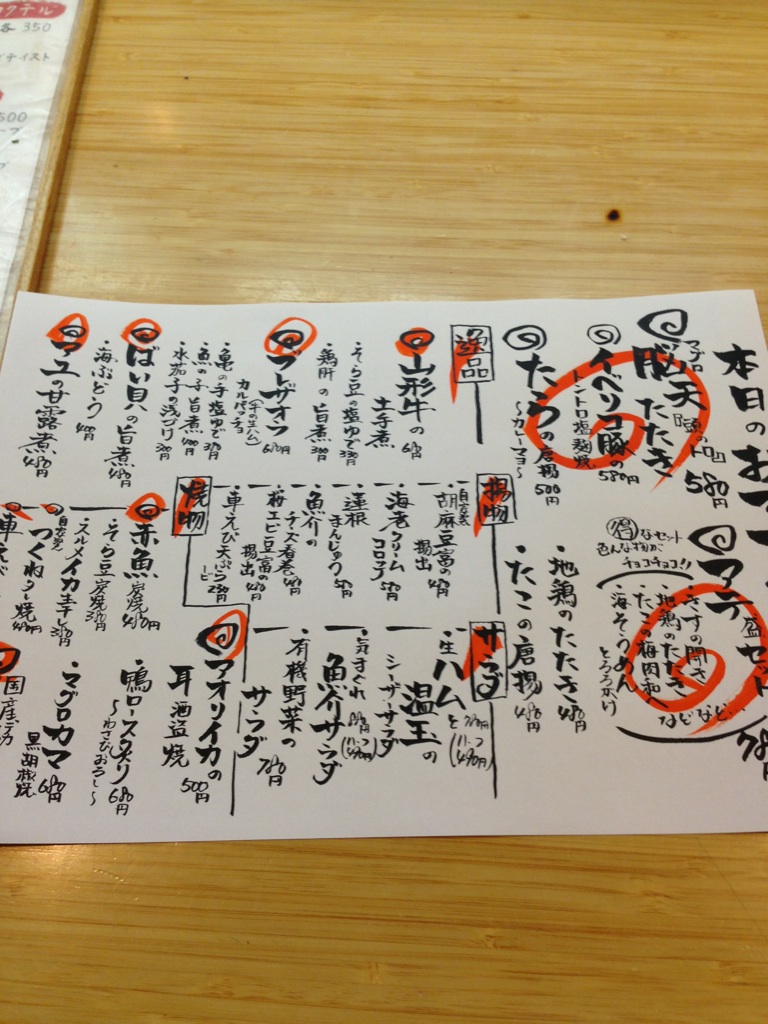 本日のおすす
マグロ
脳天『頭のトロ』
たたき 580円
イベリコ豚の
トントロ塩麹焼 580円
たらの唐揚
〜カレーマヨ〜 500円
アテ盛セット 780円
得なセット
色んな物が
チョコチョコ!!
地鶏のたたき
たこの梅肉和え
海そうめん
とろろがけ
などなど…
・地鶏のたたき 480円
・たこの唐揚 480円
逸品
山形牛の
土手煮 680円
・そら豆の塩ゆで 330円
・鶏肝の旨煮 380円
ブレザオラ
(牛の生ハム)
カルパッチョ 680円
・亀の手塩ゆで 380円
・魚の子旨煮 400円
・水茄子の浅づけ 300円
ばい貝の旨煮 480円
・海ぶどう 400円
アユの甘露煮 480円
揚物
自家製
胡麻豆富の
揚出 480円
海老クリーム
コロッケ 580円
蓮根
まんじゅう 580円
魚介の
チーズ春巻 480円
桜エビ豆富の
揚出 480円
・車えび天ぷら
一ピ 250円
サラダ
・生ハムと
温玉の
シーザーサラダ 780円
(ハーフ 490円)
・気まぐれ
魚介サラダ
(ハーフ 490円)
・有機野菜の
サラダ 780円
焼物
赤魚 炭焼 480円
・そら豆炭焼 380円
・スルメイカ
自家製
つくねタレ焼 480円
車えび
アオリイカの
耳酒盗焼 500円
・鴨ロースタタリ
〜わさびおろし〜 680円
・マグロカマ
黒胡椒焼 680円
国産
クテル
各 350
テイスト
500